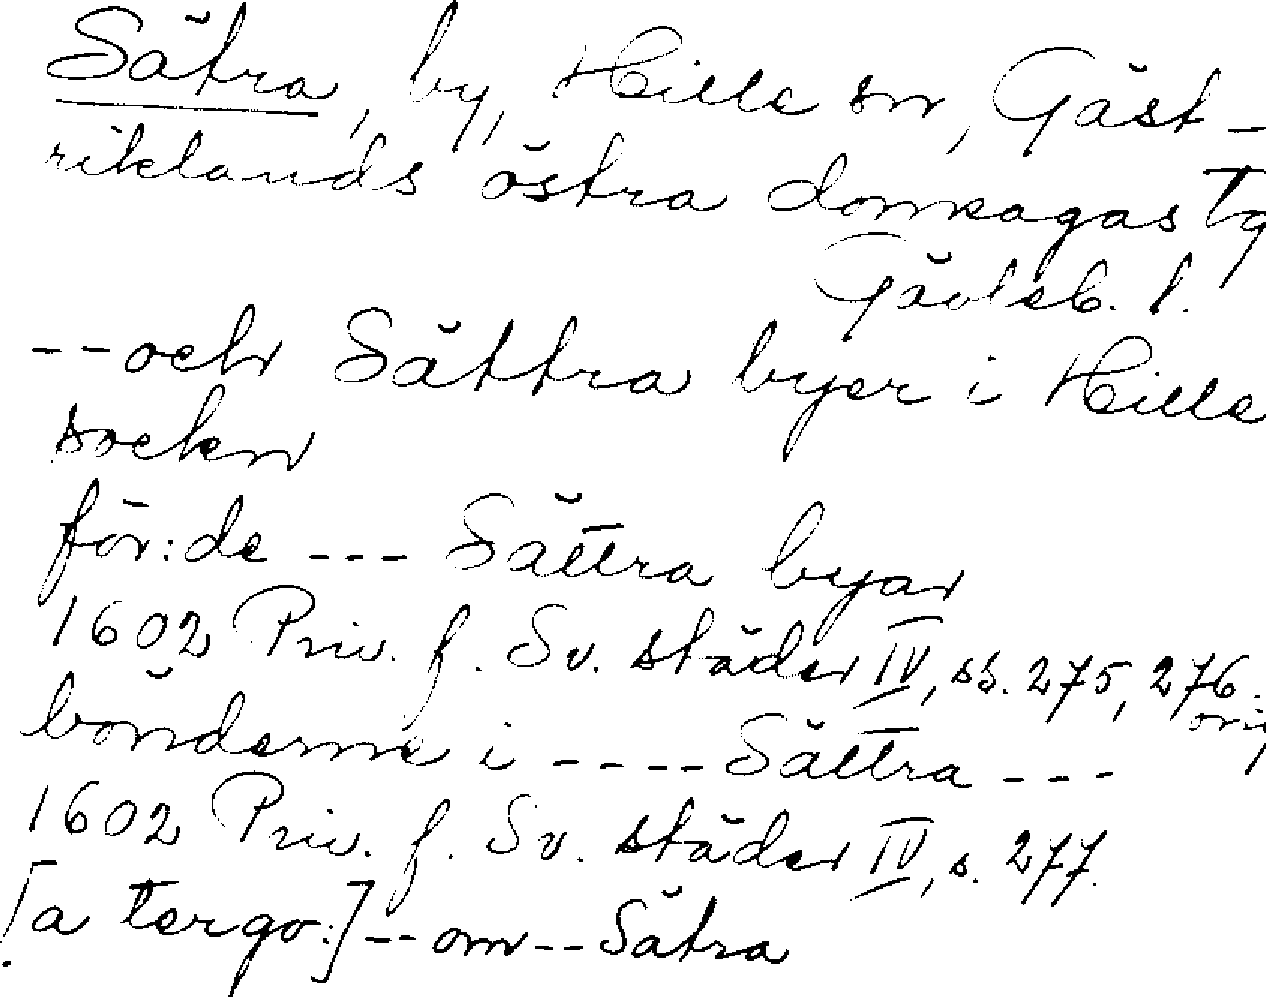 Sätra, by, Hille sn, Gäst-
riklands östra domsagas tg
Gävleb. l.
--och Sättra byer i Hille
sockn
för:de --- Sättra byar
1602 Priv. f. Sv. städer IV, ss. 275, 276.
orig
bönderne i ---- Sättra ---
1602 Priv. f. Sv. städer IV, s. 277.
[a tergo:] -- om -- Sätra